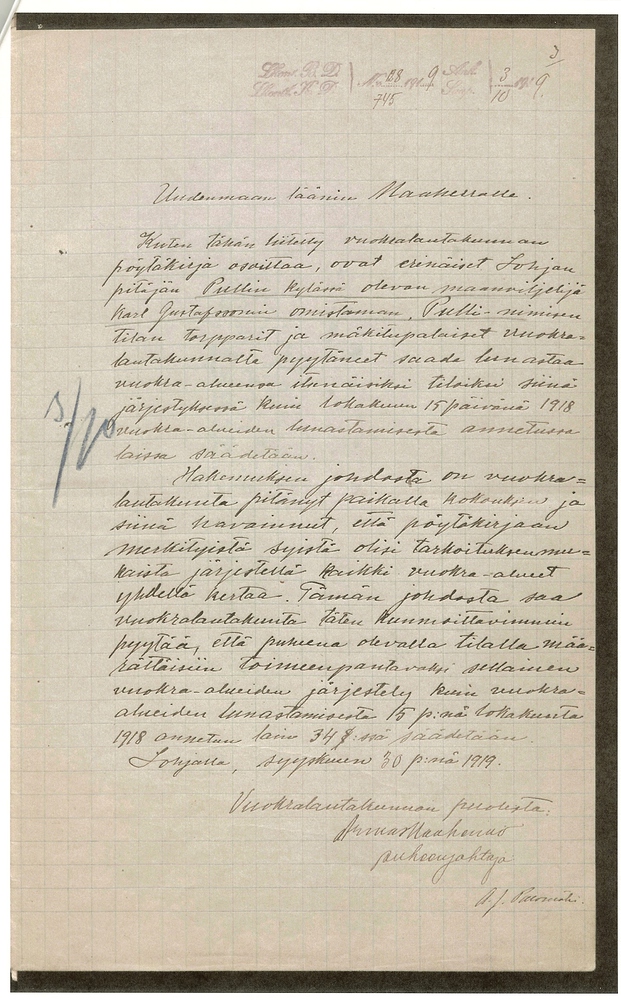 3
No 68 1919 3 1919
745 10
Uudenmaan läänin Maaherralle.
Kuten tähän liitetty vuokralautakunnan
pöytäkirja osoittaa, ovat erinäiset Lohjan
pitäjän Pullin kylässä olevan maanviljelijä
Karl Gustafssonin omistaman, Pulli-nimisen
tilan torpparit ja mäkitupalaiset vuokra=
lautakunnalta pyytäneet saada lunastaa
vuokra-alueensa itsenäisiksi tiloiksi siinä
järjestyksessä kuin lokakuun 15 päivänä 1918
vuokra-alueiden lunastamisesta annetussa
laissa säädetään.
3/10
Hakemuksen johdosta on vuokra=
lautakunta pitänyt paikalla kokouksen ja
siinä havainnut, että pöytäkirjaan
merkityistä syistä olisi tarkoituksenmu=
kaista järjestellä kaikki vuokra-alueet
yhdellä kertaa. Tämän johdosta saa
vuokralautakunta täten kunnioittavimmin
pyytää, että puheena olevalla tilalla mää=
rättäisiin toimeenpantavaksi sellainen
vuokra-alueiden järjestely kuin vuokra=
alueiden lunastamisesta 15 p:nä lokakuuta
1918 annetun lain 34 §:ssä säädetään.
Lohjalla, syyskuun 30 p:nä 1919.
Vuokralautakunnan puolesta:
puheenjohtaja
A. J.